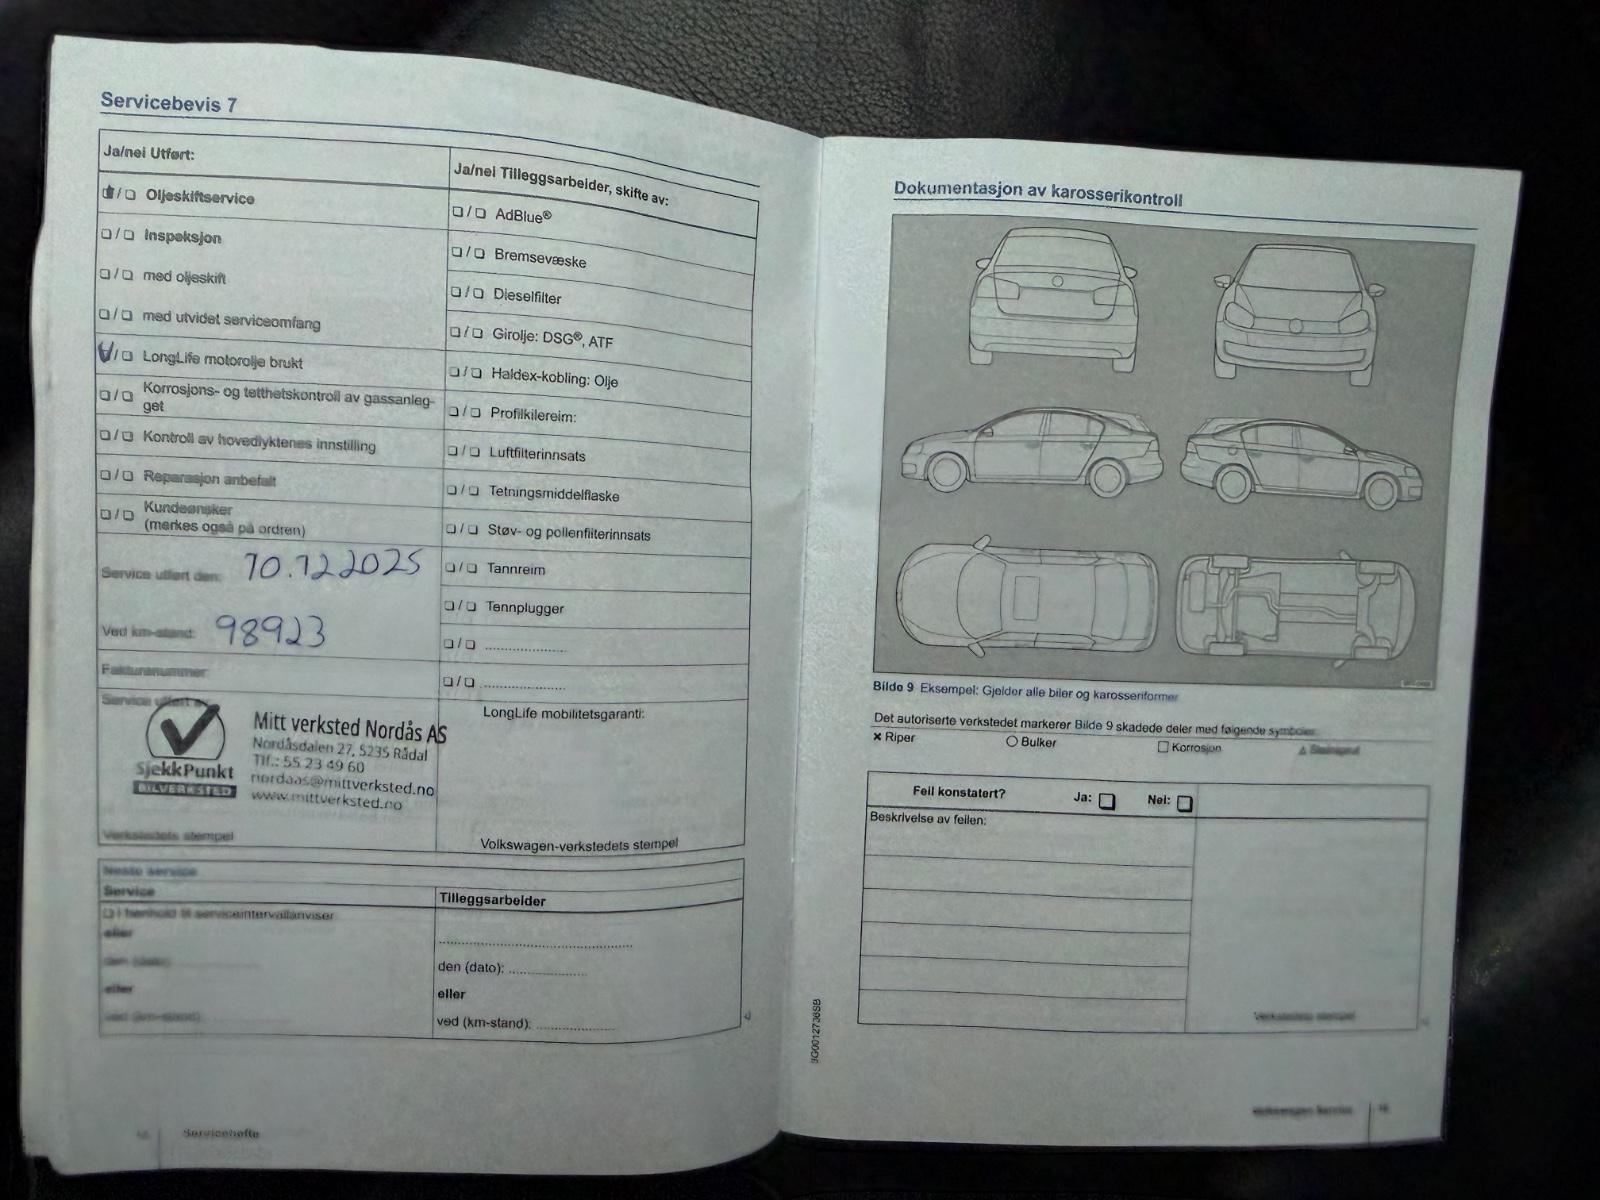 Servicebevis 7
Ja/nei Utført:
☑/❑ Oljeskiftservice
❑/❑ Inspeksjon
❑/❑ med oljeskift
❑/❑ med utvidet serviceomfang
☑/❑ LongLife motorolje brukt
❑/❑ Korrosjons- og tetthetskontroll av gassanleg-
get
❑/❑ Kontroll av hovedlyktenes innstilling
❑/❑ Reparasjon anbefalt
❑/❑ Kundeønsker
(merkes også på ordren)
Service utført den: 10.12 2025
Ved km-stand: 98923
Fakturanummer
Service utført av
SjekkPunkt
BILVERKSTED
Mitt verksted Nordås AS
Nordåsdalen 27, 5235 Rådal
Tlf.: 55 23 49 60
nordaas@mittverksted.no
www.mittverksted.no
Verkstedets stempel
Ja/nei Tilleggsarbeider, skifte av:
❑/❑ AdBlue®
❑/❑ Bremsevæske
❑/❑ Dieselfilter
❑/❑ Girolje: DSG®, ATF
❑/❑ Haldex-kobling: Olje
❑/❑ Profilkilereim:
❑/❑ Luftfilterinnsats
❑/❑ Tetningsmiddelflaske
❑/❑ Støv- og pollenfilterinnsats
❑/❑ Tannreim
❑/❑ Tennplugger
❑/❑ ....................
❑/❑ ....................
LongLife mobilitetsgaranti:
Volkswagen-verkstedets stempel
Neste service
Service
❑ I henhold til serviceintervallanviser
eller
den (dato):
eller
ved (km-stand):
Tilleggsarbeider
..............................................
den (dato): ....................
eller
ved (km-stand): ....................
Servicehefte
Dokumentasjon av karosserikontroll
Bilde 9 Eksempel: Gjelder alle biler og karosseriformer
Det autoriserte verkstedet markerer Bilde 9 skadede deler med følgende symboler:
× Riper ○ Bulker □ Korrosjon
Feil konstatert? Ja: ❑ Nei: ❑
Beskrivelse av feilen:
Verkstedets stempel
Volkswagen Service